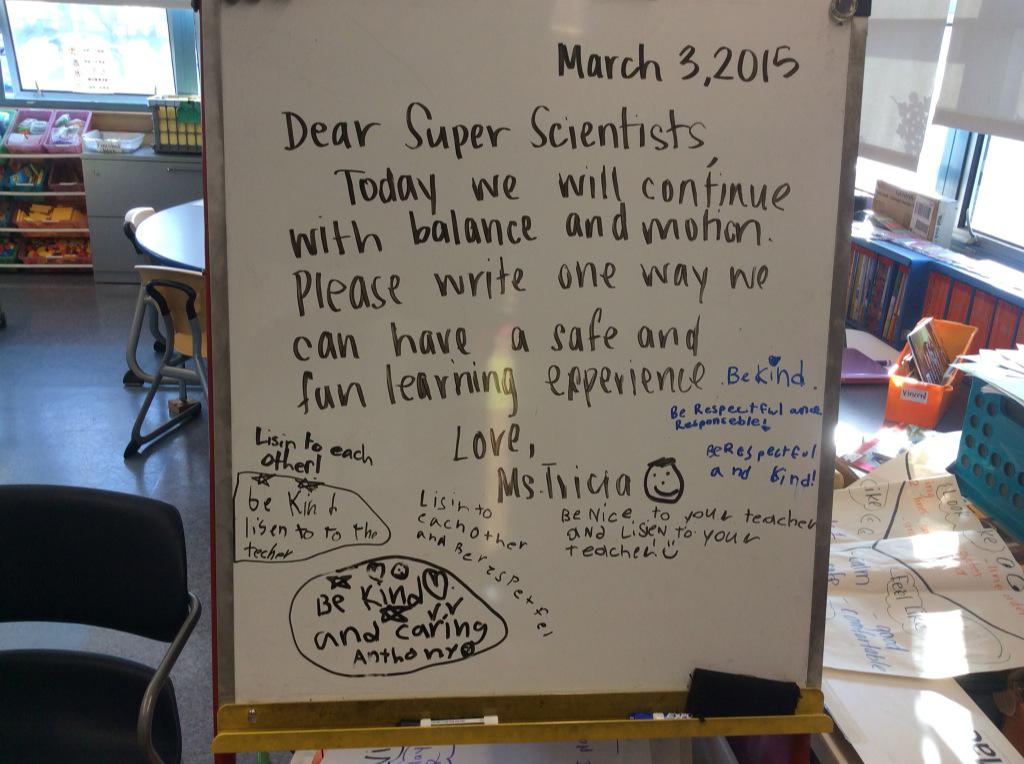 March 3,2015
Dear Super Scientists,
Today we will continue
with balance and motion.
Please write one way we
can have a safe and
fun learning experience.
Love,
Ms. Tricia
Be Kind.
Be Respectful and
Responseble!
Be Respectful
and Kind!
Lisin to each
other!
be Kind
lisen to to the
techer
Lisin to
each other
and Be respetfel
Be Nice to your teacher
and Lisen to your
teacher!
Be Kind
and caring
Anthony
Vincent